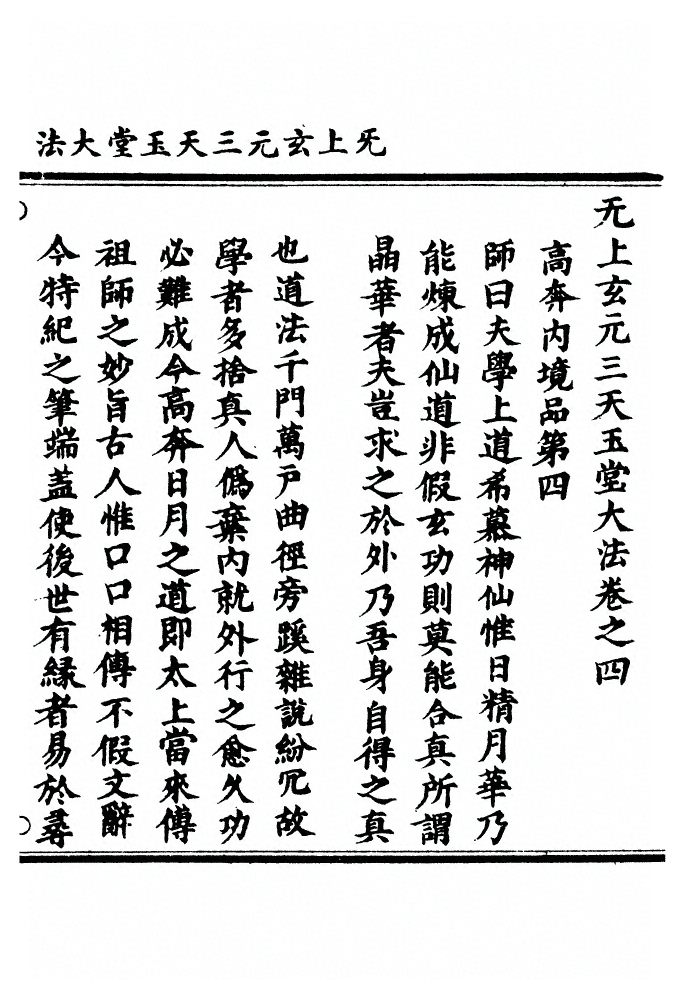 法大堂玉天三元玄上旡
无上玄元三天玉堂大法卷之四
高奔內境品第四
師曰夫學上道希慕神仙惟日精月華乃
能煉成仙道非假玄功則莫能合真所謂
晶華者夫豈求之於外乃吾身自得之真
也道法千門萬戶曲徑旁蹊雜說紛冗故
學者多捨真人僞棄內就外行之愈久功
必難成今高奔日月之道即太上當來傳
祖師之妙旨古人惟口口相傳不假文辭
今特紀之筆端蓋使後世有緣者易於尋